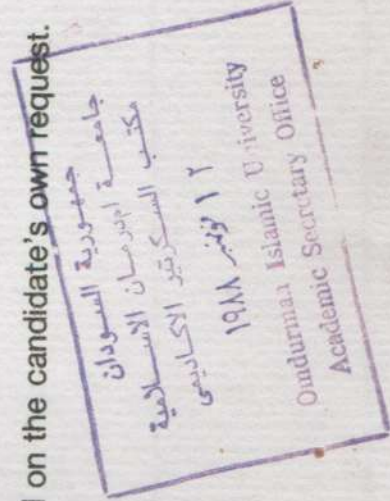 on the candidate's own request.
جمهورية السودان
جامعة امدرمان الاسلامية
مكتب السكرتير الاكاديمي
١٢ نوفمبر ١٩٨٨
Omdurman Islamic University
Academic Secretary Office